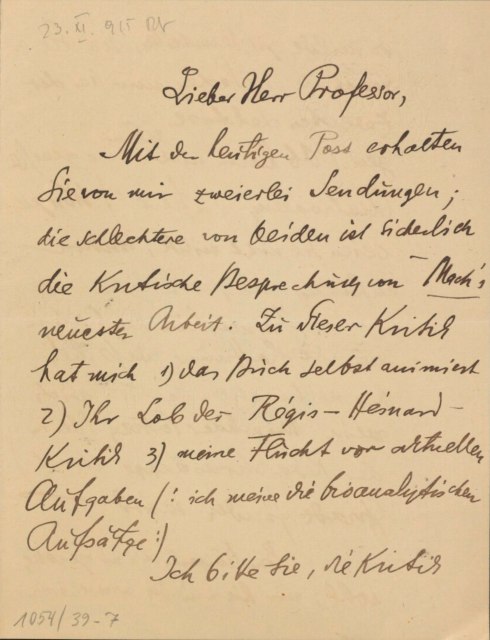 23. XI. 915
Lieber Herr Professor,
Mit der heutigen Post erhalten
Sie von mir zweierlei Sendungen;
die schlechtere von beiden ist sicherlich
die kritische Besprechung von Mach's
neuester Arbeit. Zu dieser Kritik
hat mich 1) das Buch selbst animiert
2) Ihr Lob der Régis-Hésnard-
Kritik 3) meine Flucht vor aktuellen
Aufgaben (: ich meine die bioanalytischen
Aufsätze :)
Ich bitte Sie, die Kritik
1054/39-7